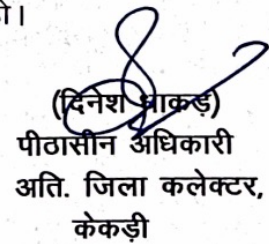 ो।
(दिनेश धाकड़)
पीठासीन अधिकारी
अति. जिला कलेक्टर,
केकड़ी